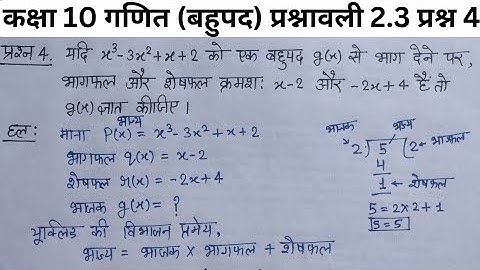 कक्षा 10 गणित (बहुपद) प्रश्नावली 2.3 प्रश्न 4
प्रश्न 4. यदि x³-3x²+x+2 को एक बहुपद g(x) से भाग देने पर,
भागफल और शेषफल क्रमश: x-2 और -2x+4 है तो
g(x) ज्ञात कीजिए।
हल: माना P(x) = x³-3x²+x+2
भाज्य
भागफल q(x) = x-2
शेषफल r(x) = -2x+4
भाजक g(x) = ?
यूक्लिड की विभाजन प्रमेय,
भाज्य = भाजक × भागफल + शेषफल
भाजक भाज्य
2) 5 (2 ← भागफल
4
1 ← शेषफल
5 = 2×2+1
5=5